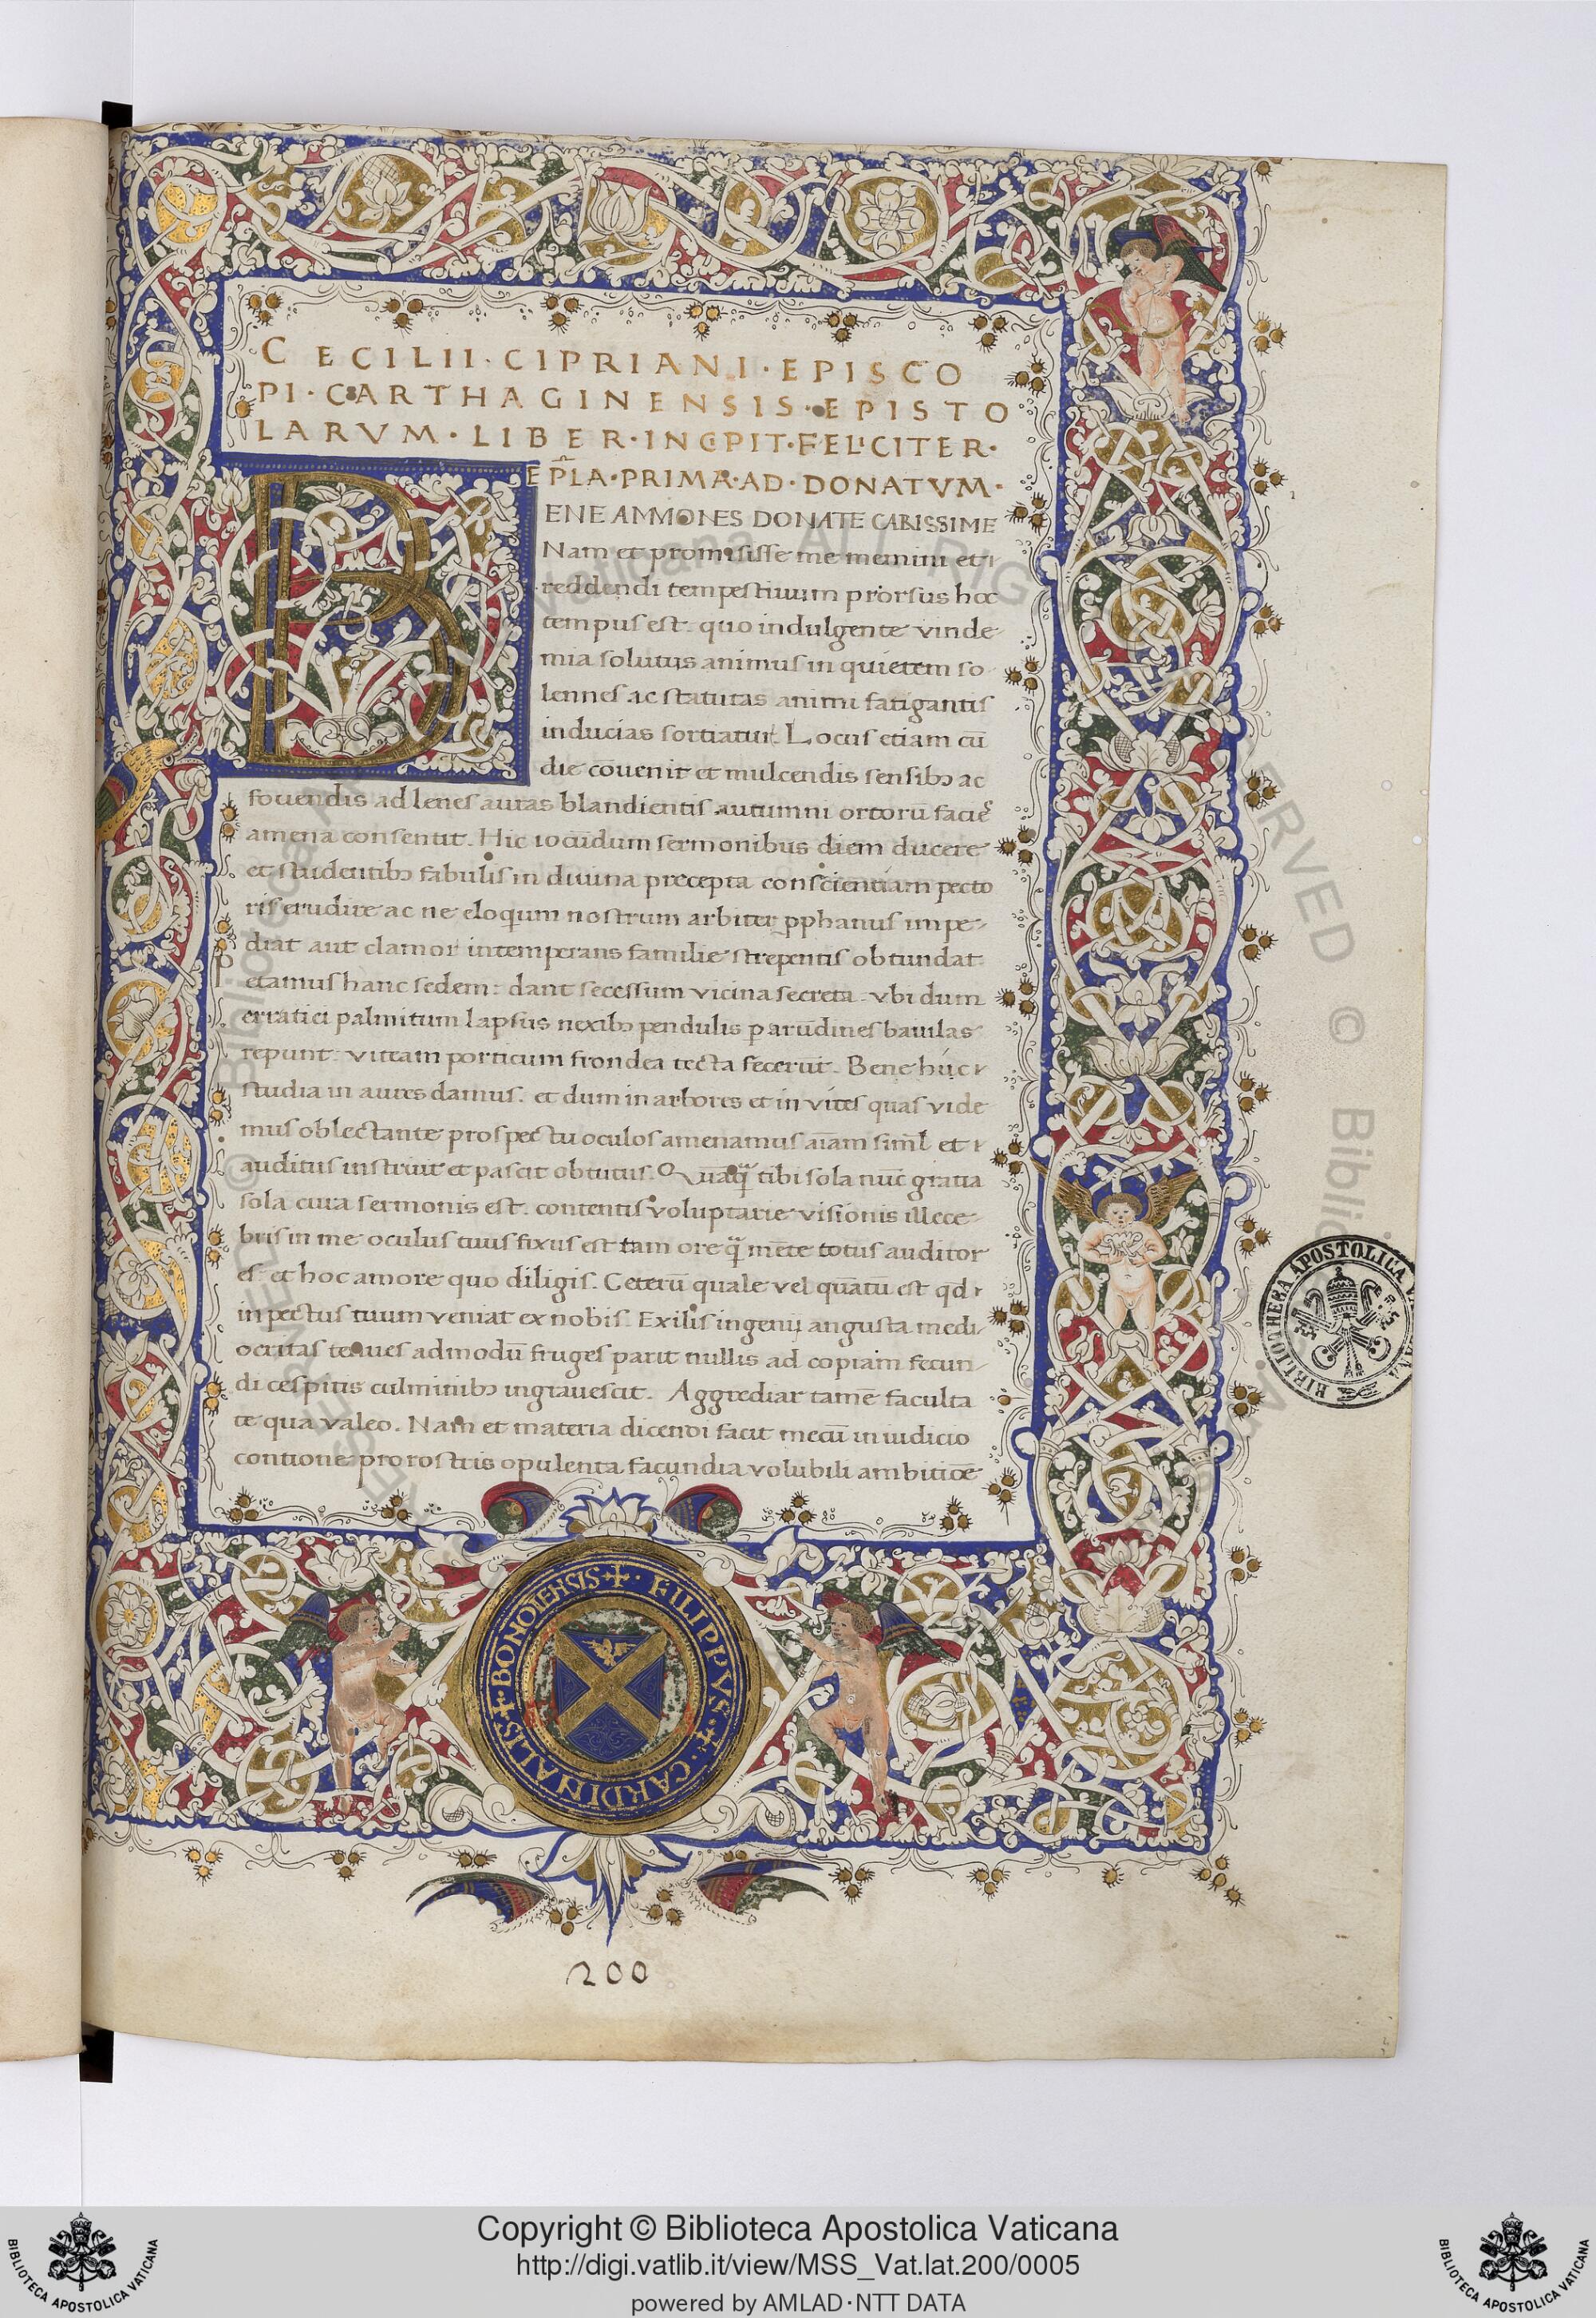 CECILII · CIPRIANI · EPISCO
PI · CARTHAGINENSIS · EPISTO
LARVM · LIBER · INCIPIT · FELICITER ·
EPL̃A · PRIMA · AD · DONATVM ·
BENE AMMONES DONATE CARISSIME
Nam et promisisse me memini et
reddendi tempestiuum prorsus hoc
tempus est. quo indulgente vinde
mia solutus animus in quietem so
lennes ac statutas animi fatigantis
inducias sortiatur. Locus etiam cū
die cōuenit et mulcendis sensibꝫ ac
fouendis ad lenes auras blandientis autumni ortorū facie
amena consentit. Hic iocūdum sermonibus diem ducere
et studentibꝫ fabulis in diuina precepta conscientiam pecto
ris erudire ac ne eloqium nostrum arbiter ꝓphanus impe-
diat aut clamor intemperans familie strepentis obtundat
petamus hanc sedem: dant secessum vicina secreta. vbi dum
erratici palmitum lapsus nexibꝫ pendulis p arūdines baiulas
repunt. viteam porticum frondea tecta fecerūt. Bene huc
studia in aures damus. et dum in arbores et in vites quas vide
mus oblectante prospectu oculos amenamus aīam siml̄ et
auditus instruit et pascit obtutus. Quāqȝ tibi sola nūc gratia
sola cura sermonis est. contentis voluptarie visionis illece-
bris in me oculus tuus fixus est tam ore q̄ mēte totus auditor
es et hoc amore quo diligis. Ceterū quale vel quātū est qd
in pectus tuum veniat ex nobis. Exilis ingenij angusta medi
ocritas tenues admodū fruges parit nullis ad copiam fecun-
di cespitis culminibꝫ ingrauescit. Aggrediar tamē faculta
te qua valeo. Nam et materia dicendi facit mecū in iudicio
contione pro rostris opulenta facundia volubili ambitiōe
FILIPPVS + CARDINALIS + BONOIENSIS +
200
BIBLIOTHECA APOSTOLICA VATICANA
Copyright © Biblioteca Apostolica Vaticana
http://digi.vatlib.it/view/MSS_Vat.lat.200/0005
powered by AMLAD·NTT DATA
BIBLIOTECA APOSTOLICA VATICANA
BIBLIOTECA APOSTOLICA VATICANA